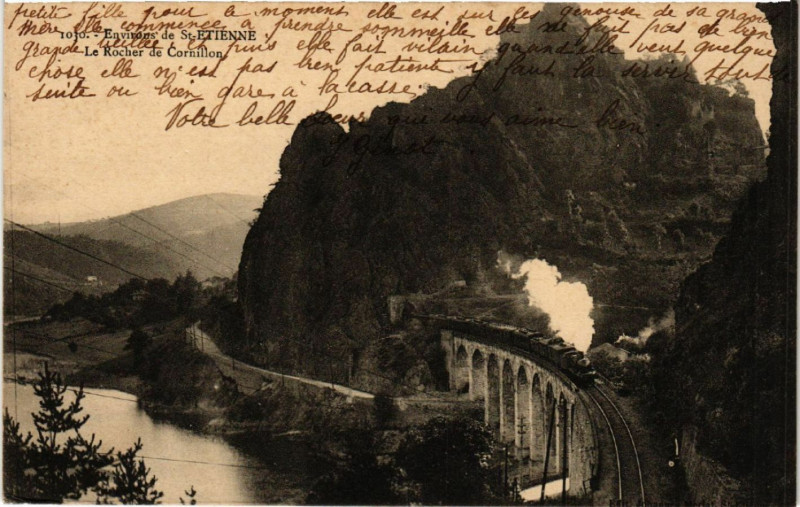 petite fille pour le moment elle est sur les genoux de sa grand
Mère elle commence a prendre sommeille elle ne fait pas de bien
1030. - Environs de St-ETIENNE
grande et puis elle fait vilain quand elle veut quelque
Le Rocher de Cornillon
chose elle n'est pas bien patiente y faut la servir tout de
suite ou bien gare à la casse.
Votre belle Sœur que vous aime bien.